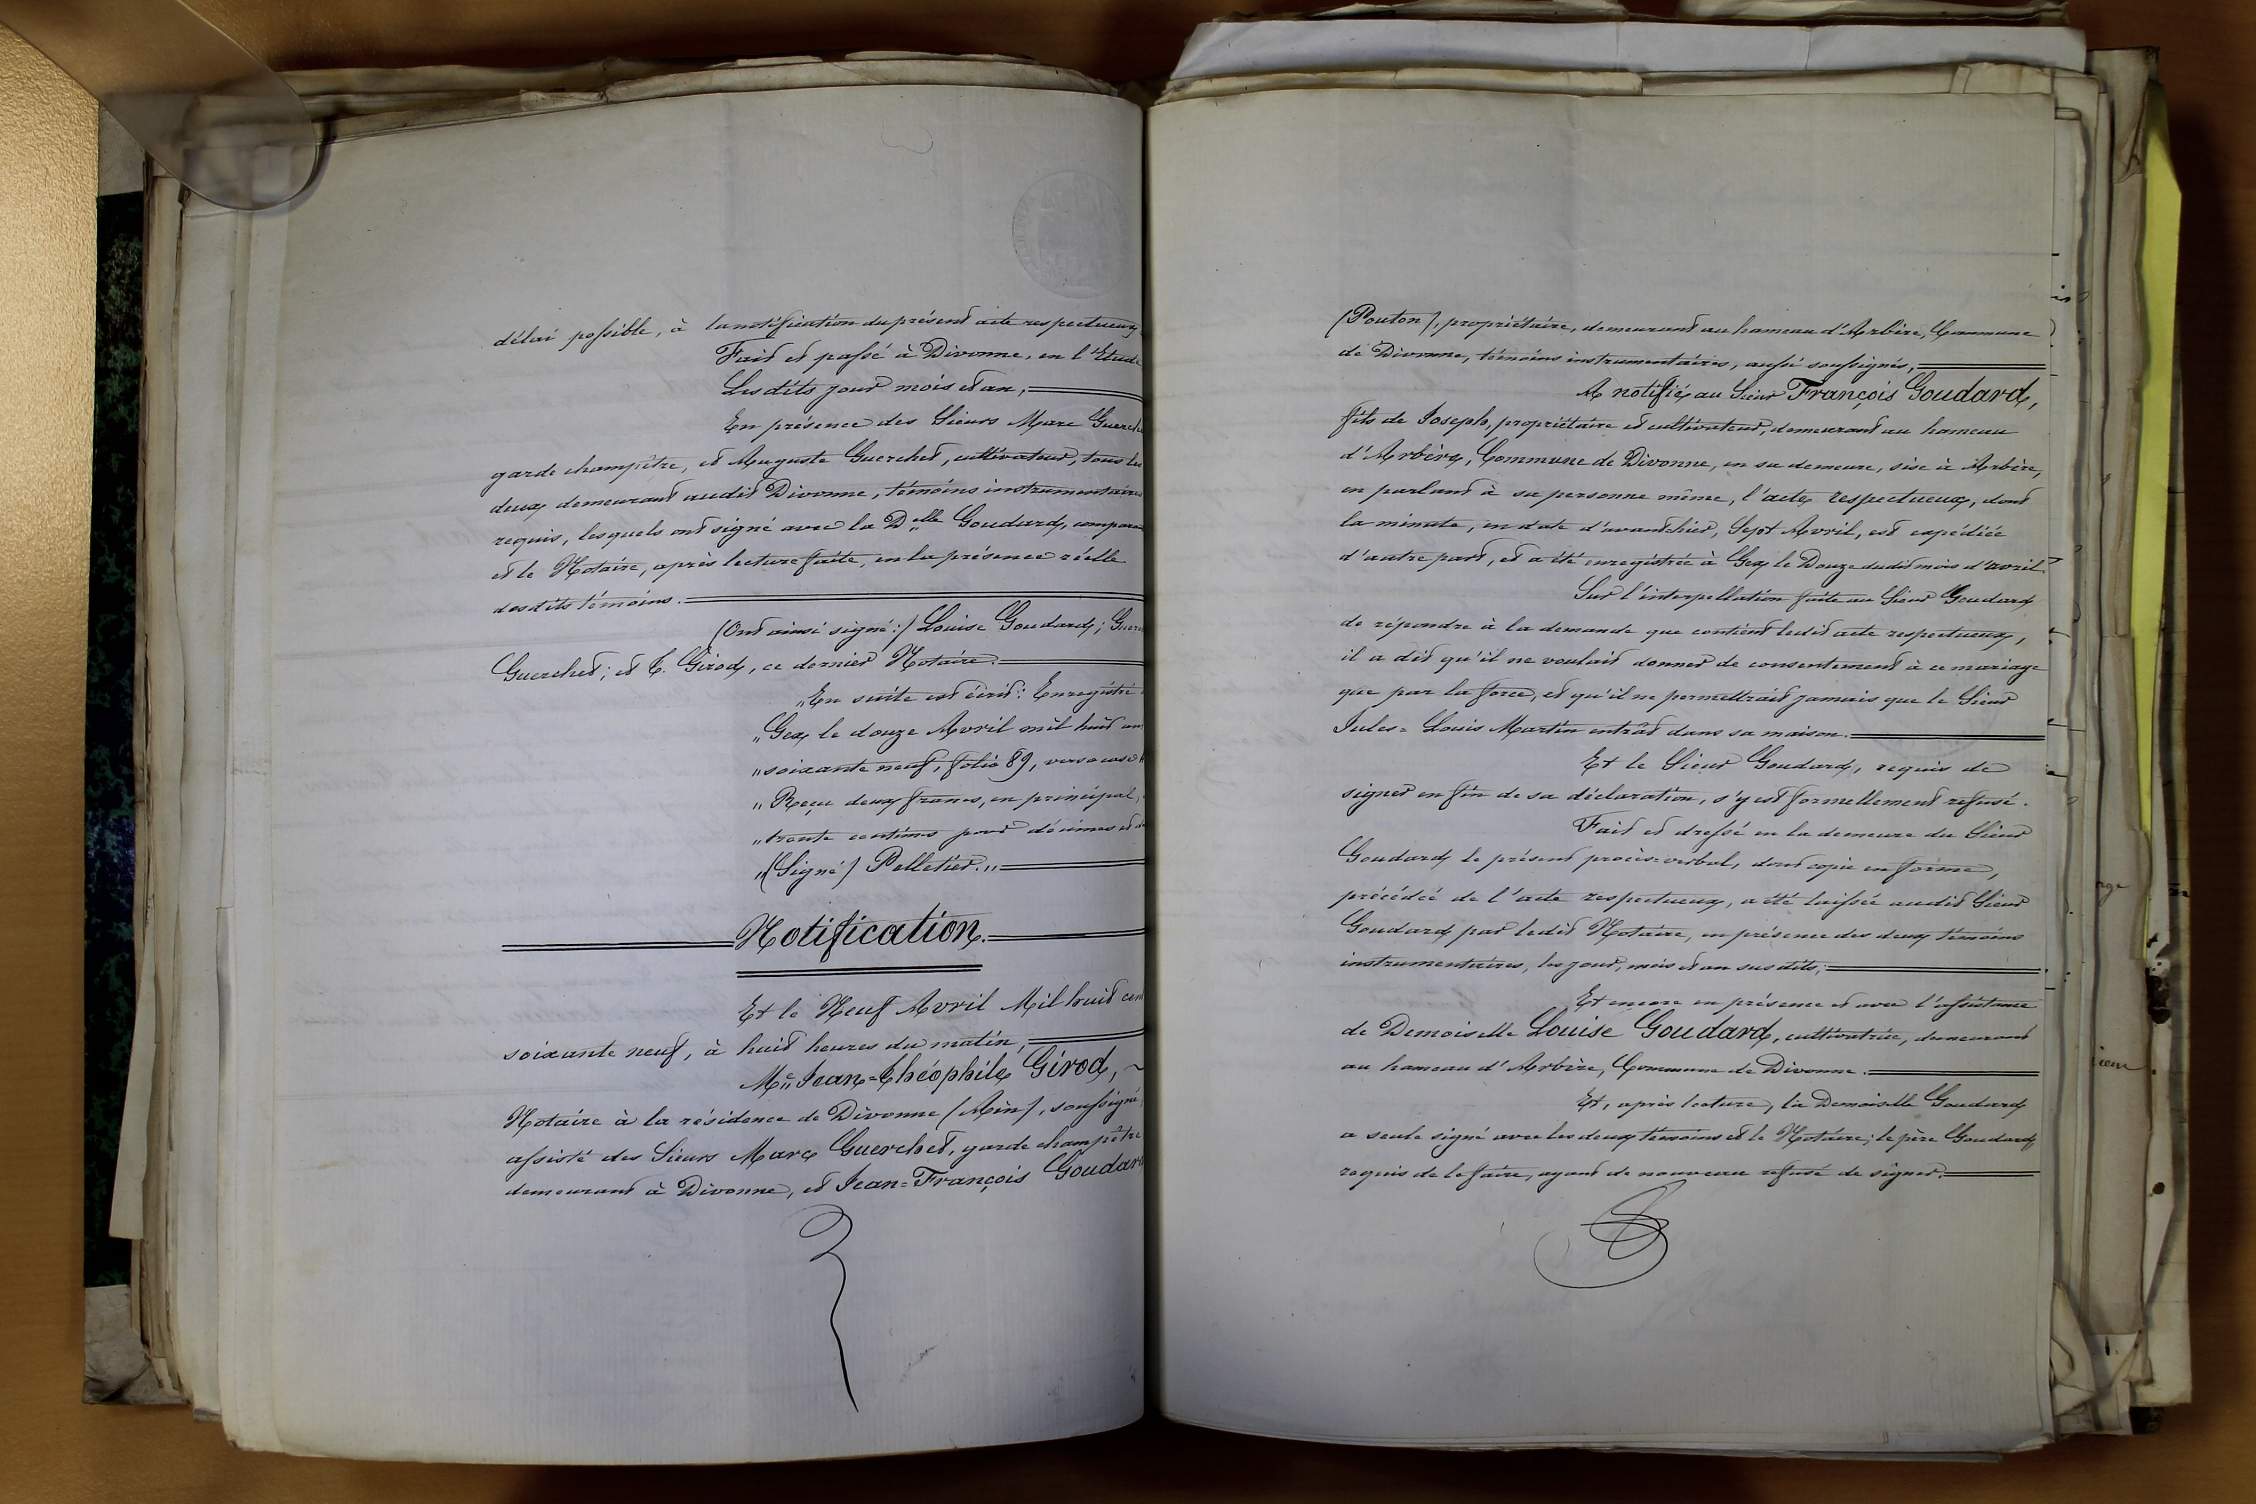 délai possible, à la notification du présent acte respectueux
Fait et passé à Divonne, en l'Etude
Les dits jour mois et an,
En présence des Sieurs Marc Guerche
garde champêtre, et Auguste Guerchet, cultivateur, tous les
deux demeurant audit Divonne, témoins instrumentaires
requis, lesquels ont signé avec la Delle Goudard, compara
et le Notaire, après lecture faite, en la présence réelle
desdits témoins.
(Ont ainsi signé:) Louise Goudard; Guer
Guerchet; et T. Girod, ce dernier Notaire.
"En suite est écrit: Enregistré
"Gex le douze Avril mil huit
"soixante neuf, folio 89, verso case
"Reçu deux francs, en principal,
"trente centimes pour décimes et
"(Signé) Pelletier."
Notification.
Et le Neuf Avril Mil huit cent
soixante neuf, à huit heures du matin,
Me Jean=Théophile Girod,
Notaire à la résidence de Divonne (Ain), soussigné,
assisté des Sieurs Marc Guerchet, garde champêtre
demeurant à Divonne, et Jean=François Goudard
(Pouton), propriétaire, demeurant au hameau d'Arbère, Commune
de Divonne, témoins instrumentaires, aussi soussignés,
A notifié au Sieur François Goudard,
fils de Joseph, propriétaire et cultivateur, demeurant au hameau
d'Arbère, Commune de Divonne, en sa demeure, sise à Arbère,
en parlant à sa personne même, l'acte respectueux, dont
la minute, en date d'avant hier, Sept Avril, est expédiée
d'autre part, et a été enregistrée à Gex le Douze dudit mois d'avril.
Sur l'interpellation faite au Sieur Goudard
de répondre à la demande que contient ledit acte respectueux,
il a dit qu'il ne voulait donner de consentement à ce mariage
que par la force, et qu'il ne permettrait jamais que le Sieur
Jules=Louis Martin entrât dans sa maison.
Et le Sieur Goudard, requis de
signer en fin de sa déclaration, s'y est formellement refusé.
Fait et dressé en la demeure du Sieur
Goudard le présent procès=verbal, dont copie en forme,
précédée de l'acte respectueux, a été laissée audit Sieur
Goudard par ledit Notaire, en présence des deux témoins
instrumentaires, les jour, mois et an susdits;
Et encore en présence et avec l'assistance
de Demoiselle Louise Goudard, cultivatrice, demeurant
au hameau d'Arbère, Commune de Divonne.
Et, après lecture, la Demoiselle Goudard
a seule signé avec les deux témoins et le Notaire; le père Goudard,
requis de le faire, ayant de nouveau refusé de signer.